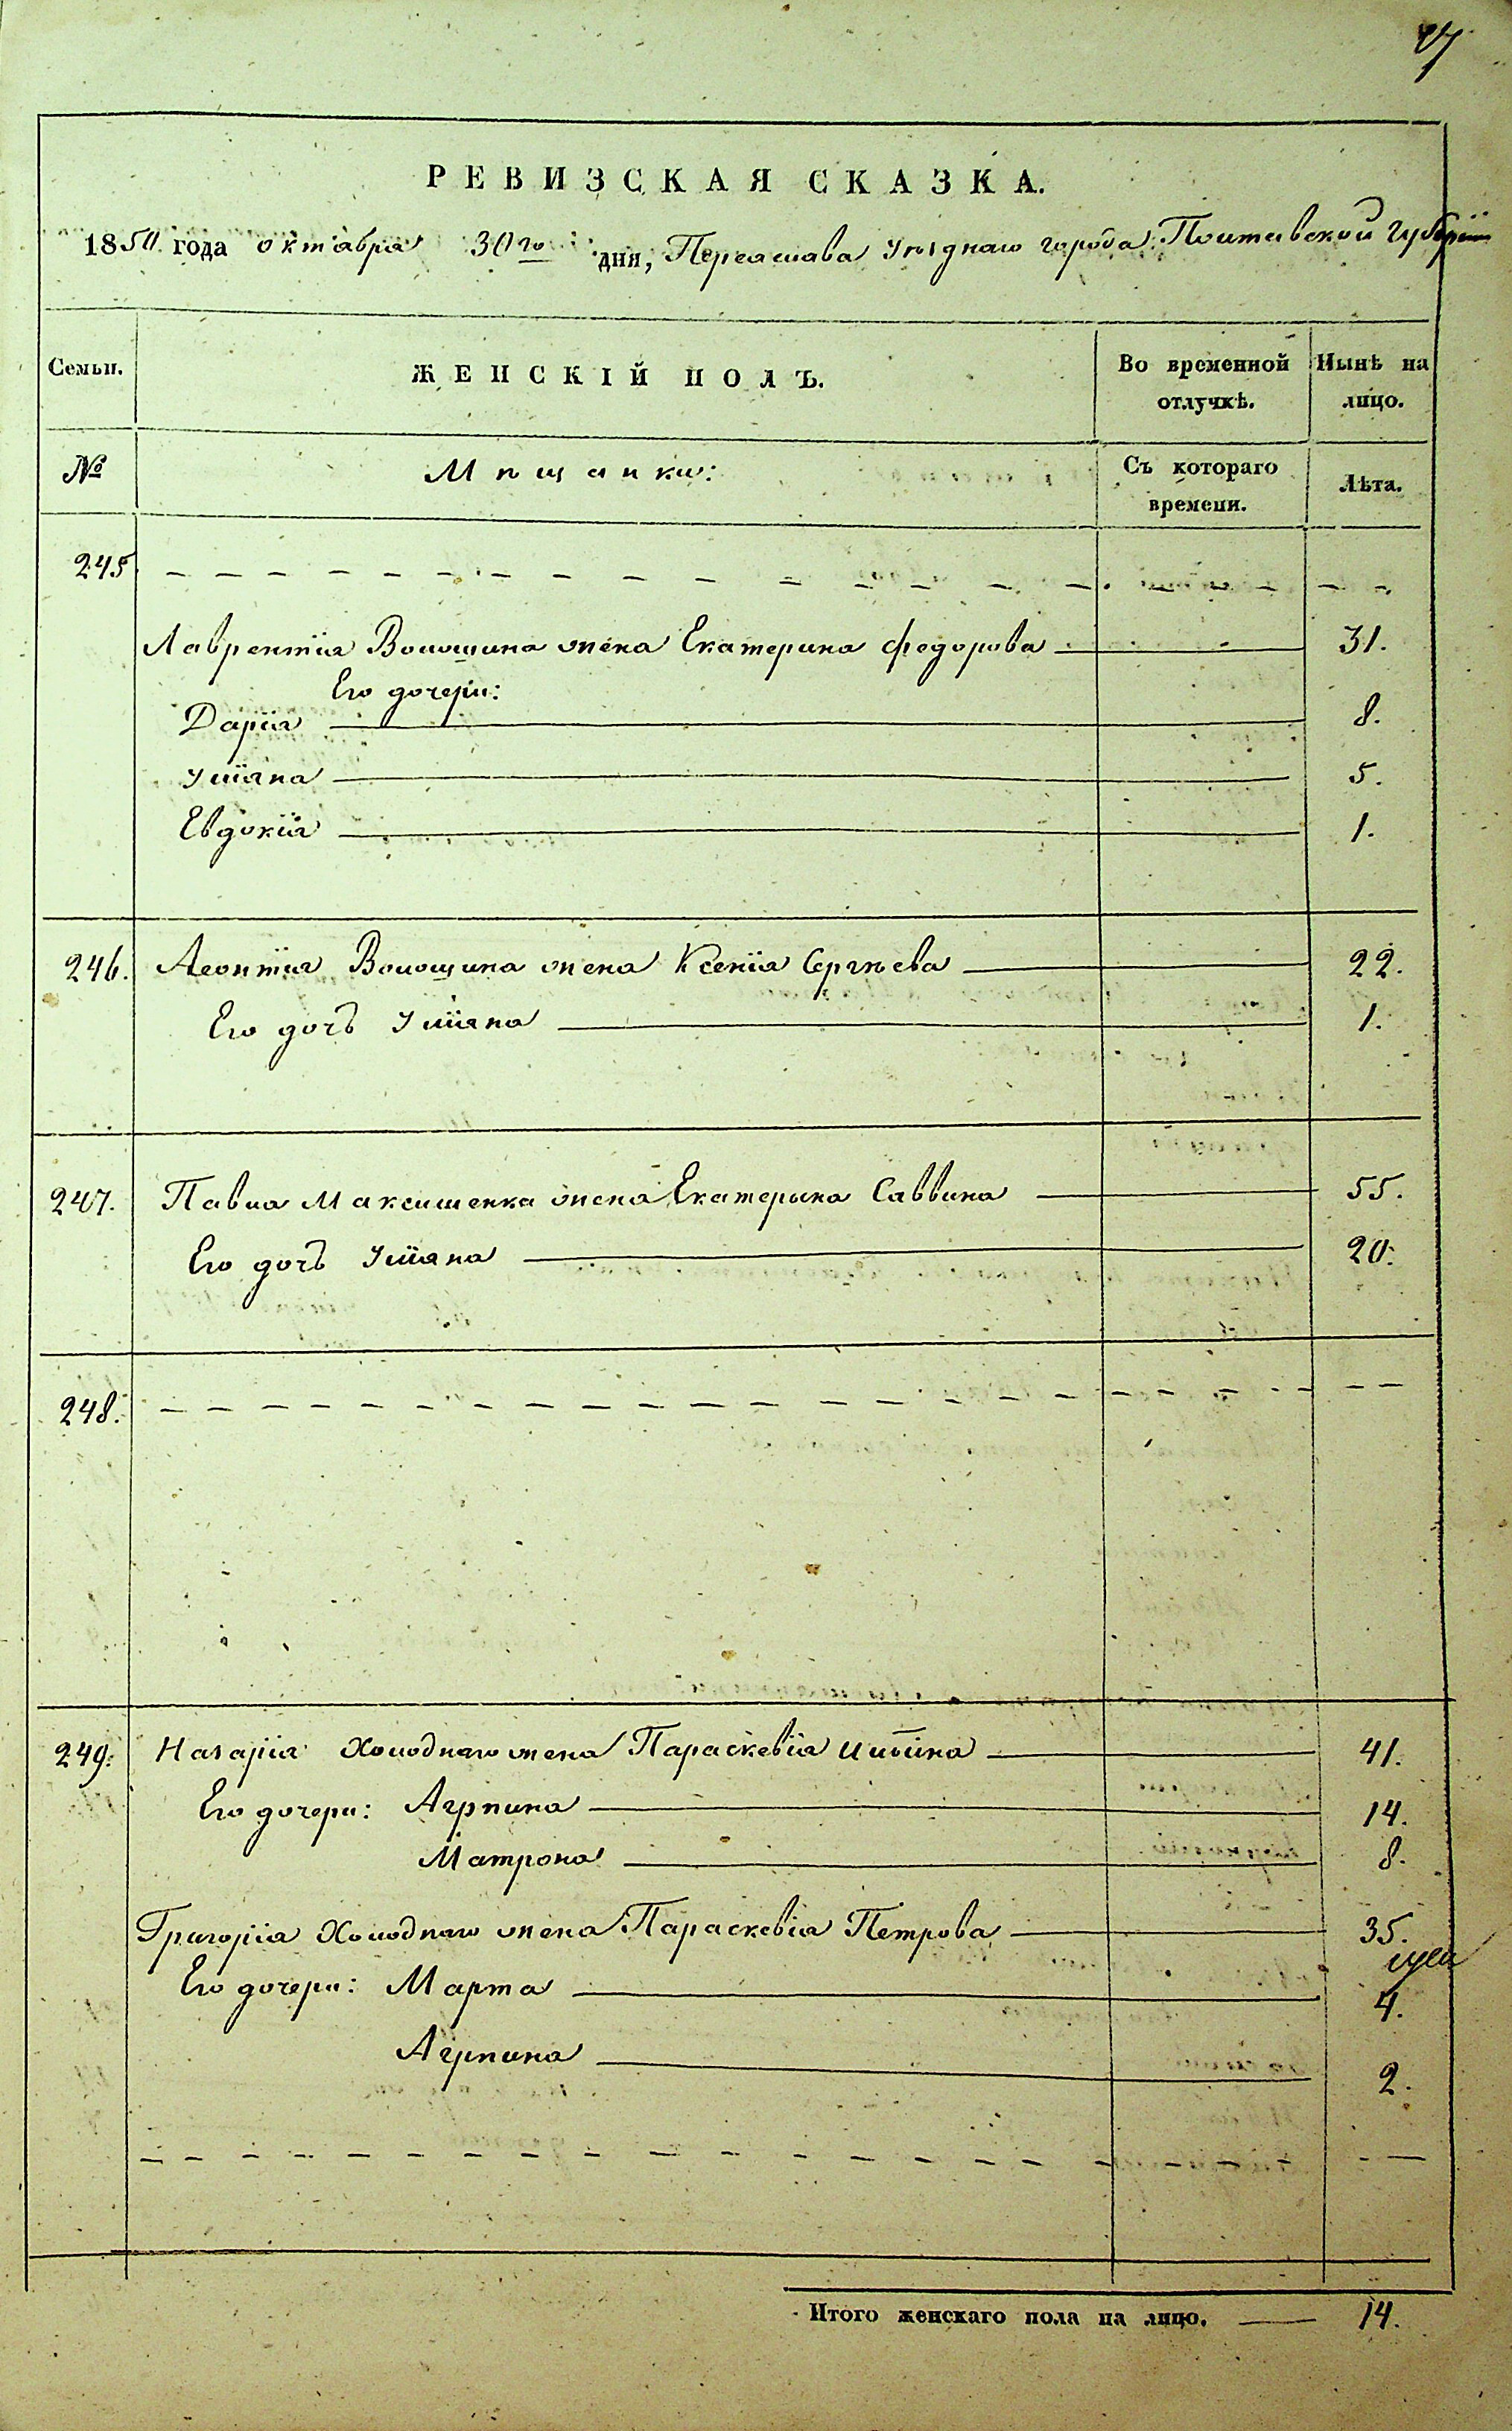 РЕВИЗСКАЯ СКАЗКА.
1850 года октября 30го дня, Переяслава уѣзднаго города Полтавской Губерніи
Семьи. ЖЕНСКІЙ ПОЛЪ. Во временной отлучкѣ. Нынѣ на лицо.
№ Мѣщанки: Съ котораго времени. Лѣта.
245
Лаврентія Волошина жена Екатерина Федорова 31.
Его дочери:
Дарія 8.
Уліяна 5.
Евдокія 1.
246. Леонтія Волощина жена Ксенія Сергѣева 22.
Его дочь Уліяна 1.
247. Павла Максименка жена Екатерына Саввина 55.
Его дочь Уліяна 20.
248.
249. Назарія Холоднаго жена Параскевія 41.
Его дочери: Агрпина 14.
Матрона 8.
Григорія Холоднаго жена Параскевія Петрова 35.
Его дочери: Марта 4.
Агрпина 2.
Итого женскаго пола на лицо. 14.